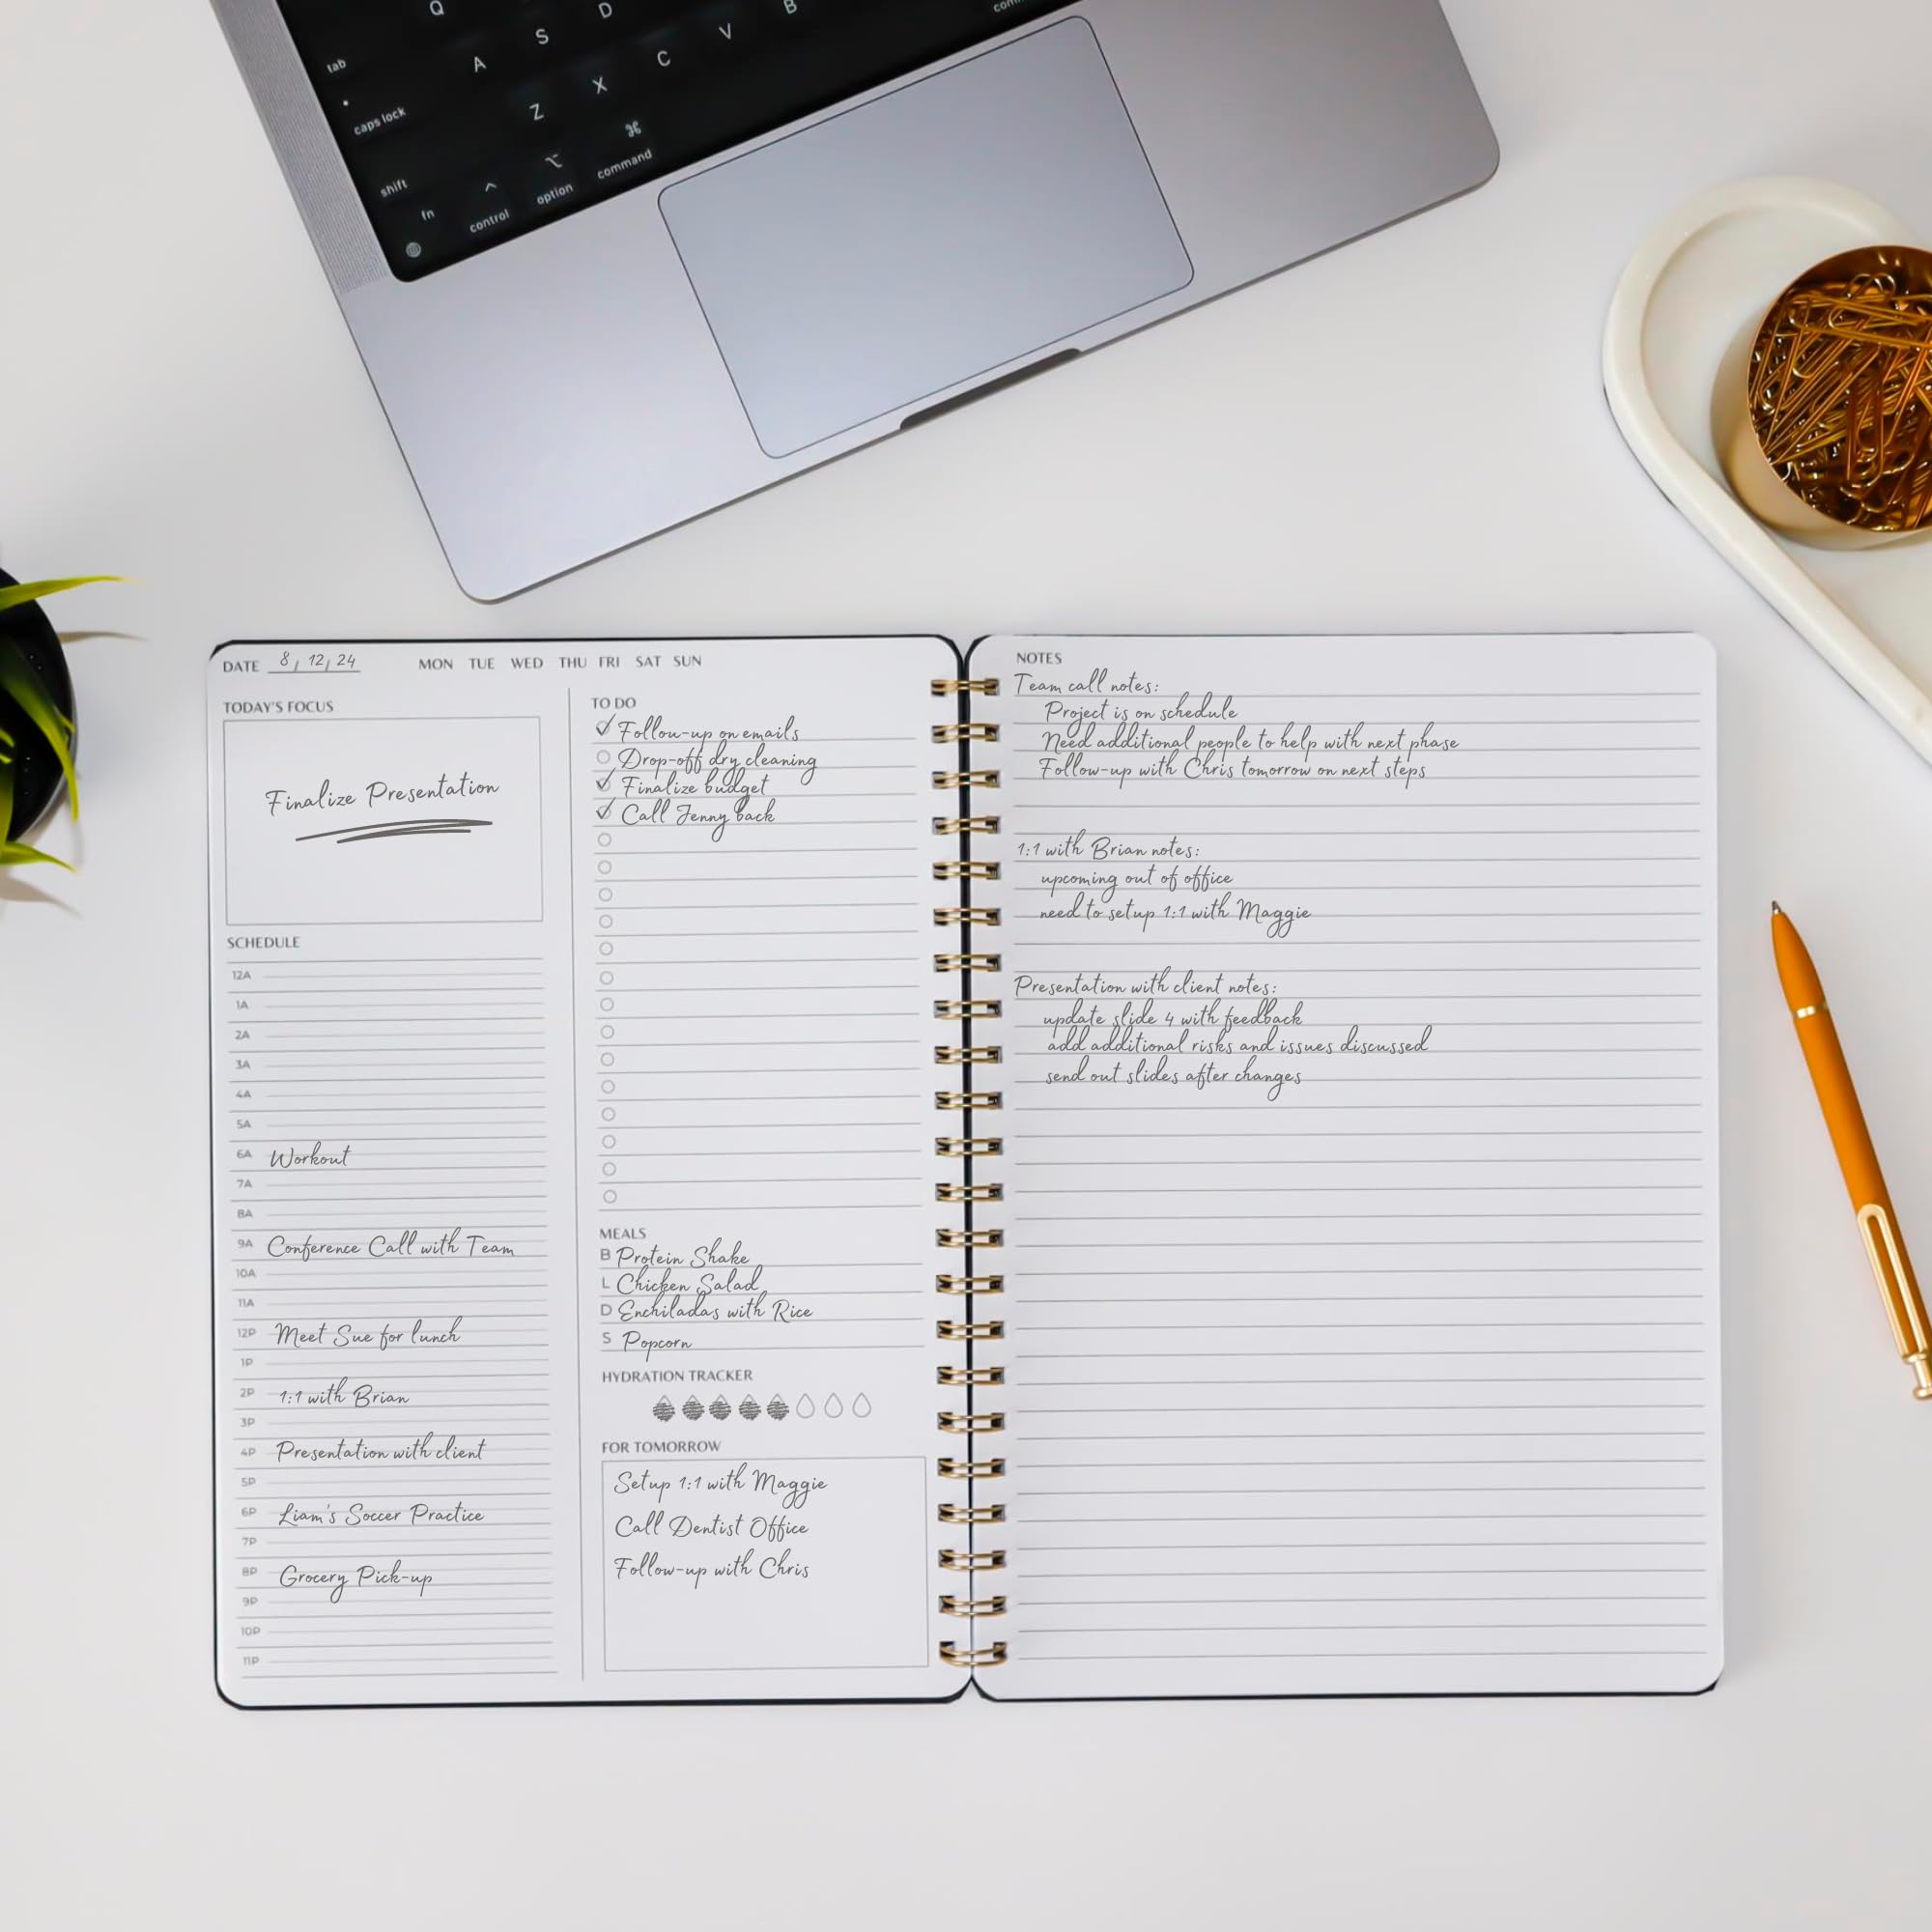 Q
A S D B
tab
caps lock Z X C V
shift
fn control option command
⌘
⌥
^
DATE 8/ 12/ 24 MON TUE WED THU FRI SAT SUN
TODAY'S FOCUS
Finalize Presentation
SCHEDULE
12A
1A
2A
3A
4A
5A
6A Workout
7A
8A
9A Conference Call with Team
10A
11A
12P Meet Sue for lunch
1P
2P 1:1 with Brian
3P
4P Presentation with client
5P
6P Liam's Soccer Practice
7P
8P Grocery Pick-up
9P
10P
11P
TO DO
Follow-up on emails
Drop-off dry cleaning
Finalize budget
Call Jenny back
MEALS
B Protein Shake
L Chicken Salad
D Enchiladas with Rice
S Popcorn
HYDRATION TRACKER
FOR TOMORROW
Setup 1:1 with Maggie
Call Dentist Office
Follow-up with Chris
NOTES
Team call notes:
Project is on schedule
Need additional people to help with next phase
Follow-up with Chris tomorrow on next steps
1:1 with Brian notes:
upcoming out of office
need to setup 1:1 with Maggie
Presentation with client notes:
update slide 4 with feedback
add additional risks and issues discussed
send out slides after changes